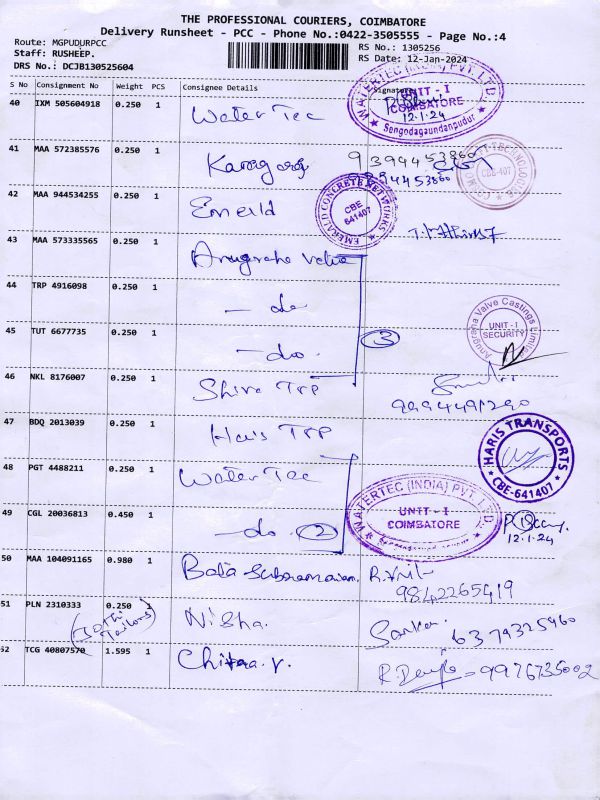 THE PROFESSIONAL COURIERS, COIMBATORE
Delivery Runsheet - PCC - Phone No.:0422-3505555 - Page No.:4
Route: MGPUDURPCC
Staff: RUSHEEP.
DRS No.: DCJB130525604
RS No.: 1305256
RS Date: 12-Jan-2024
S No Consignment No Weight PCS Consignee Details Signature
40 IXM 505604918 0.250 1 Water Tec
WATERTEC (INDIA) PVT. LTD. UNIT - I COIMBATORE Sengodagaundanpudur
12.1.24
41 MAA 572385576 0.250 1 9394453860
9394453860
CBE-407
42 MAA 944534255 0.250 1 Emerld
EMERALD CONCRETE NETWORKS CBE 641407
43 MAA 573335565 0.250 1 Anugraha Valve
44 TRP 4916098 0.250 1 - do
45 TUT 6677735 0.250 1 - do. 3
Anugraha Valve Castings Limited UNIT - I SECURITY
46 NKL 8176007 0.250 1 Shiva TRP
9994491290
47 BDQ 2013039 0.250 1 Haris TRP
HARIS TRANSPORTS CBE-641407
48 PGT 4488211 0.250 1 Water Tec
49 CGL 20036813 0.450 1 - do. 2
WATERTEC (INDIA) PVT. LTD. UNIT - I COIMBATORE
12.1.24
50 MAA 104091165 0.980 1 Bala Subramaniam.
9842265419
51 PLN 2310333 0.250 1 Nisha.
(Jothi Tailors)
6374325960
52 TCG 40807570 1.595 1 Chitraa.v.
9976735002